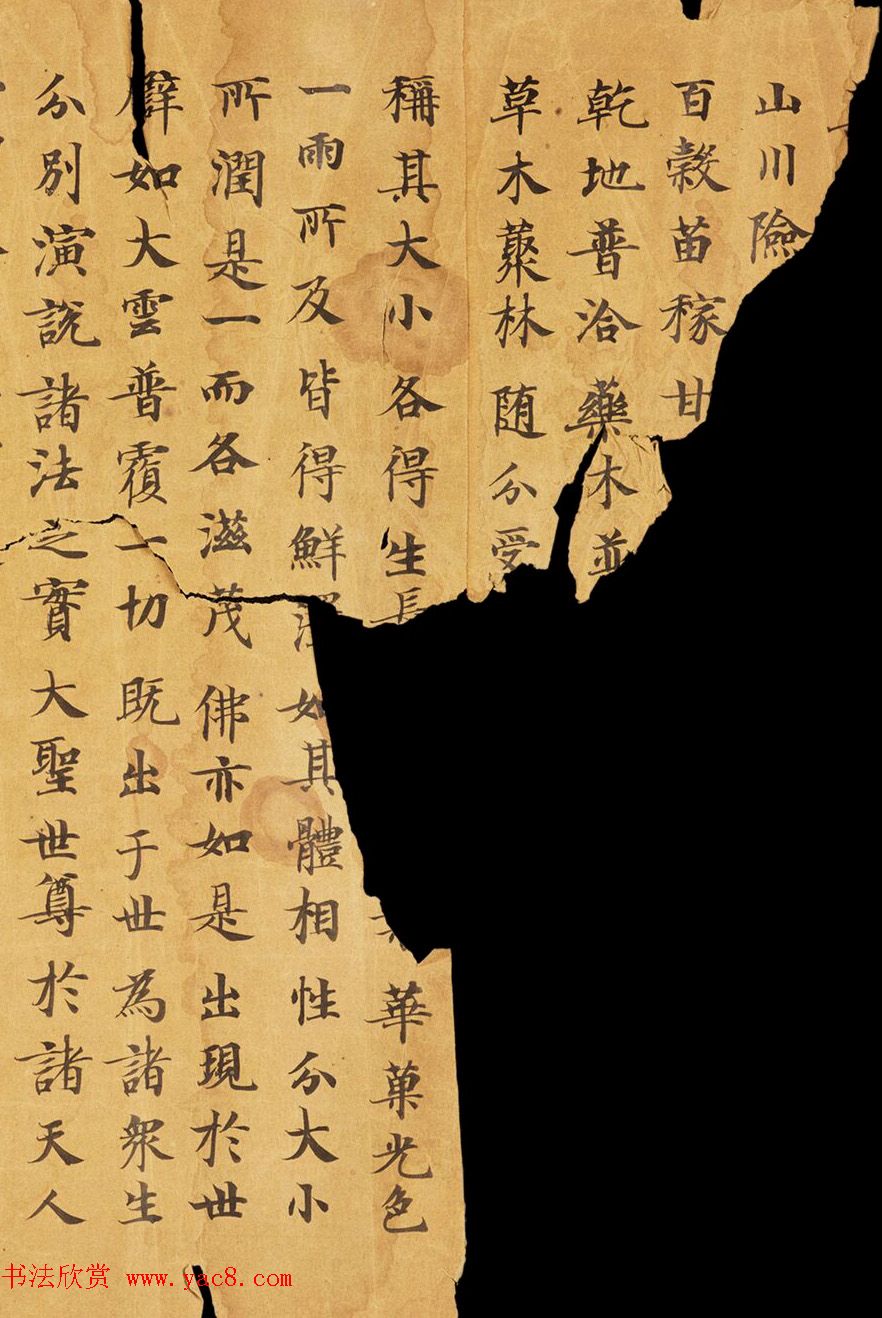 山川險
百穀苗稼甘
乾地普洽藥木並
草木藂林随分受
稱其大小各得生長華菓光色
一雨所及皆得鮮澤如其體相性分大小
所潤是一而各滋茂佛亦如是出現於世
譬如大雲普覆一切既出于世為諸衆生
分別演說諸法之實大聖世尊於諸天人
书法欣赏 www.yac8.com